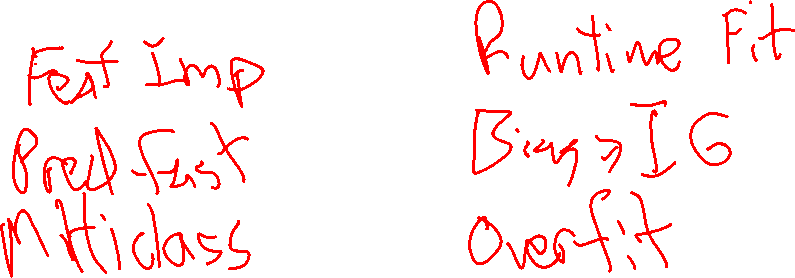 Feat Imp
Pred fast
Multiclass
Runtime Fit
Bias > IG
Overfit